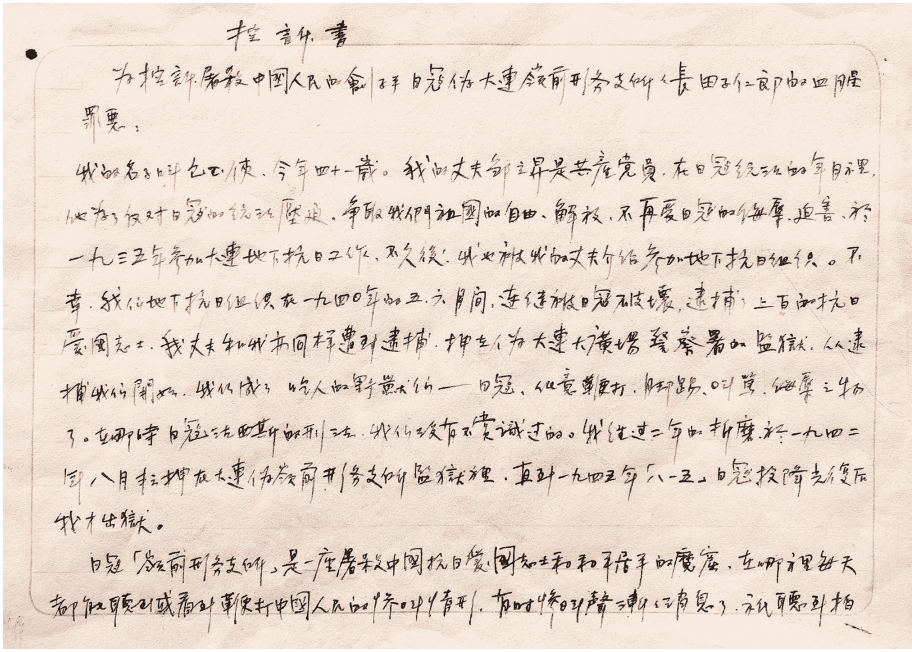 控訴書
为控訴屠殺中國人民的劊子手日寇偽大連嶺前刑务支所長田子仁郎的血腥
罪悪：
我的名子叫包玉侠、今年四十一歲。我的丈夫邹立昇是共產党員、在日寇統治的年月裡、
他为了反对日寇的統治壓迫、争取我們祖國的自由、解放、不再受日寇的侮辱、迫害、於
一九三五年参加大連地下抗日工作、不久後、我也被我的丈夫介绍参加地下抗日组织。不
幸、我们地下抗日组织在一九四〇年的五、六月間、連续被日寇破壞、逮捕了上百的抗日
爱國志士、我丈夫和我亦同样遭到逮捕、押在偽大連大廣場警察署的監獄、从逮
捕我们開始、我们成了吃人的野獸们——日寇、任意鞭打、脚踢、叫罵、侮辱之物
了。在那時日寇法西斯的刑法、我们没有不賞識过的。我经过二年的折磨、於一九四二
年八月末押在大連偽嶺前刑务支所監獄裡、直到一九四五年「八一五」日寇投降光復后
我才出獄。
日寇「嶺前刑务支所」是一座屠殺中國抗日爱國志士和和平居民的魔窟、在那裡每天
都能聽到或看到鞭打中國人民的惨叫情形、有时惨叫聲漸漸消息了、祇聽到拍